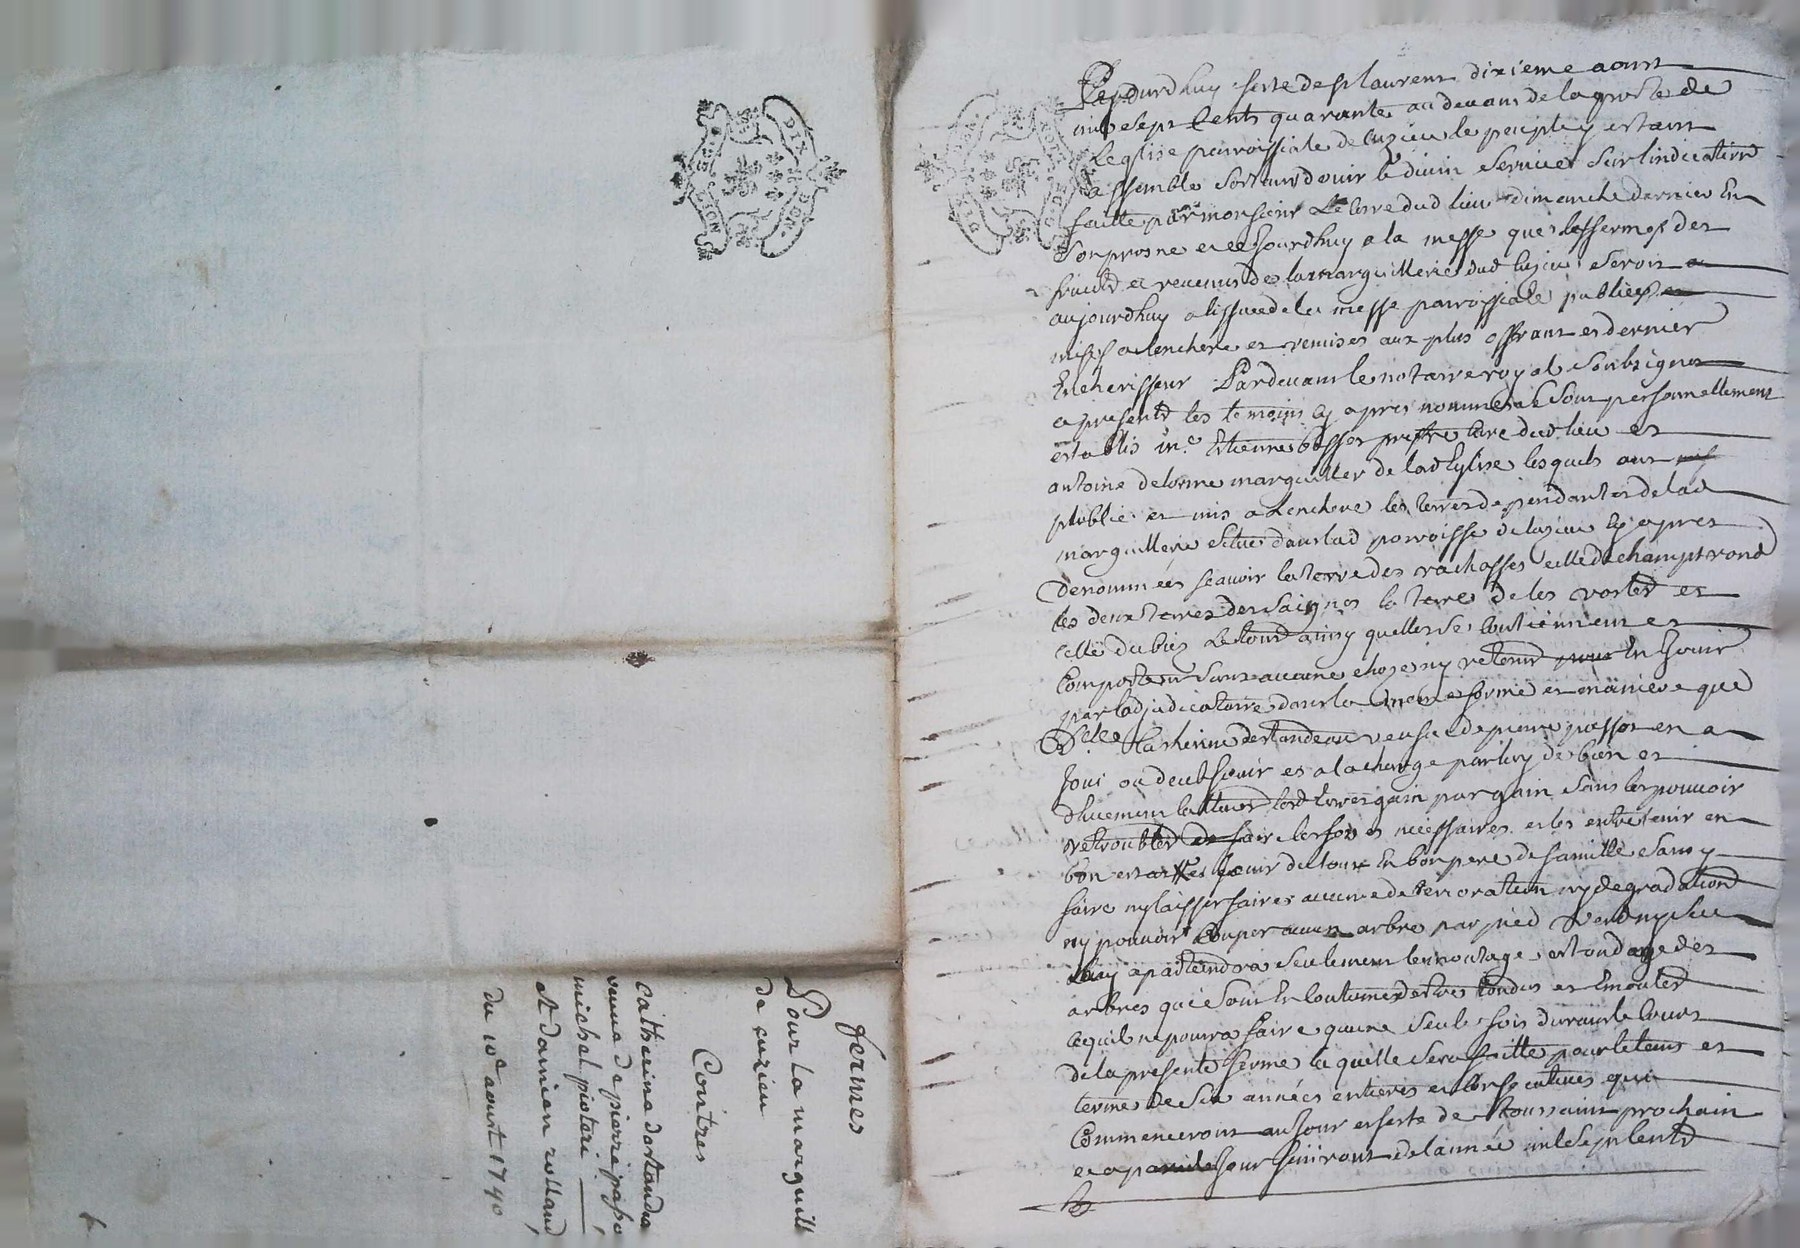 fermes
Pour la marguill
de luzieu
Contres
Catherine dortandea
veuve de pierre passo
michel pistori
et Damien rolland
du 10e aoust 1740
feste de st laurent dixieme aoust
mil sept Cents quarante au devant de la porte de
Leglise parroissiale de luzieu le peuple y estant
assemblé sortant douir le divin service sur lindication
faitte par monsieur Le Curé dud lieu dimanche dernier En
son prosne et ce jourdhuy a la messe que les fermes des
fruits et revenus de la marguillerie dud luzieu seroit
aujourdhuy a lissue de la messe parroissiale publiées
mises a lenchere et remises aux plus offrant et dernier
Encherisseur Pardevant le notaire royal soubsigné
et presents les temoins cy apres nommés se sont personnellement
establis mre Etienne bosse prestre Curé dud lieu et
antoine delorme marguillier de lad Eglise lesquels ont
publié et mis a Lenchere les terres dependantes de lad
marguillerie scitue dans lad parroisse de luzieu cy apres
denommées scavoir la terre des rachasses celle de champt rond
les deux terres des saignes la terre de les vostes et
celle du bies Le tout ainsy quelles se Contiennent et
Comportent sans aucune chose ny retenir En jouir
par ladjudicataire dans la meme forme et maniere que
Catherine dertandeau veufve de pierre passot en a
joui ou deub jouir et a la charge par luy de bien et
duement Cultiver lesd terres gain par gain sans les pouvoir
retroubler faire les fosses necessaires et les entretenir en
bon estat et jouir du tout En bon pere de famille sans y
faire ny laisser faire aucune deterioration ny degradation
ny pouvoir Couper aucun arbre par pied verd ny sec
Luy apartiendra seulement lemoutage et tondage des
arbres que sont En Coutume destres tondus et Emoutés
ce quil ne pourra faire quune seule fois durant le Cours
de la presente ferme laquelle sera faitte pour le tems et
terme de six années entieres et Consecutives qui
Commenceront au jour et feste de Toussaint prochain
et a pareil jour finiront de lannée mil sept Cents